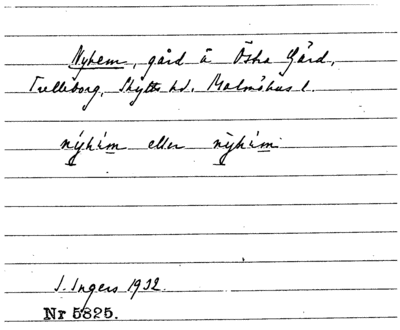 Nyhem, gård å Östra Gård,
Trelleborg, Skytts hd. Malmöhus l.
nýhìm eller nỳhím
I. Ingers 1932.
Nr 5825.